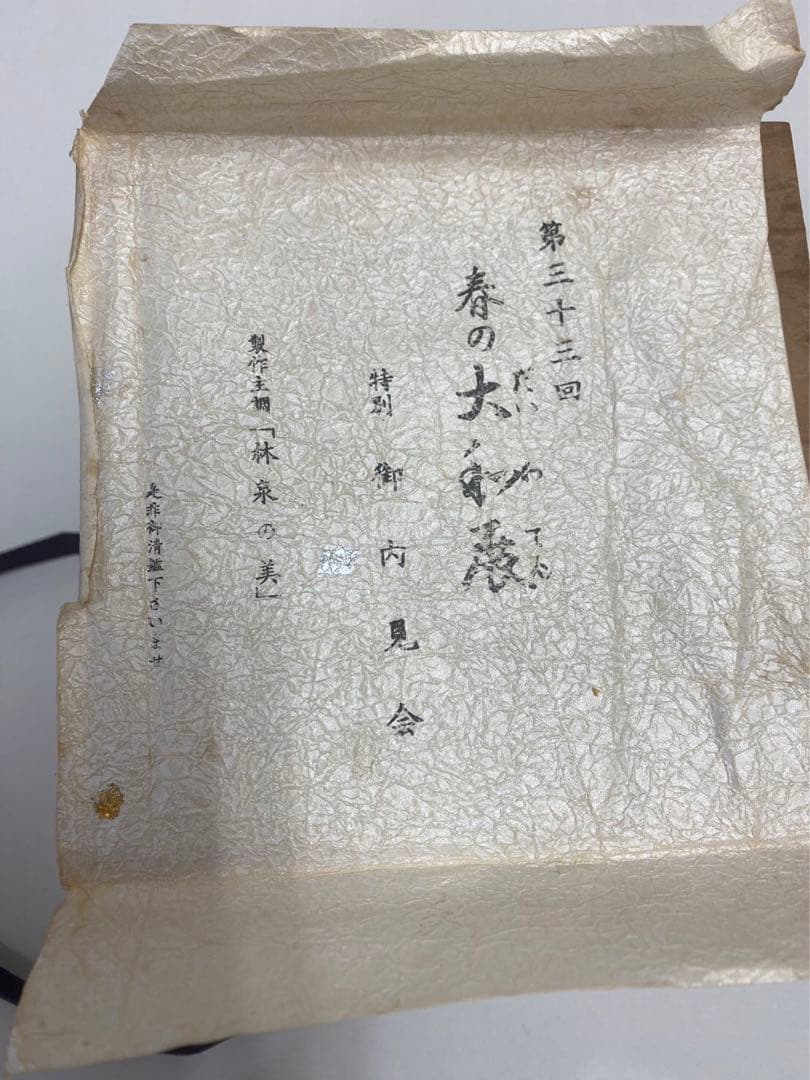 第三十三回
春の大和展
だいわてん
特別御内見会
製作主調「林泉の美」
是非御清鑑下さいませ